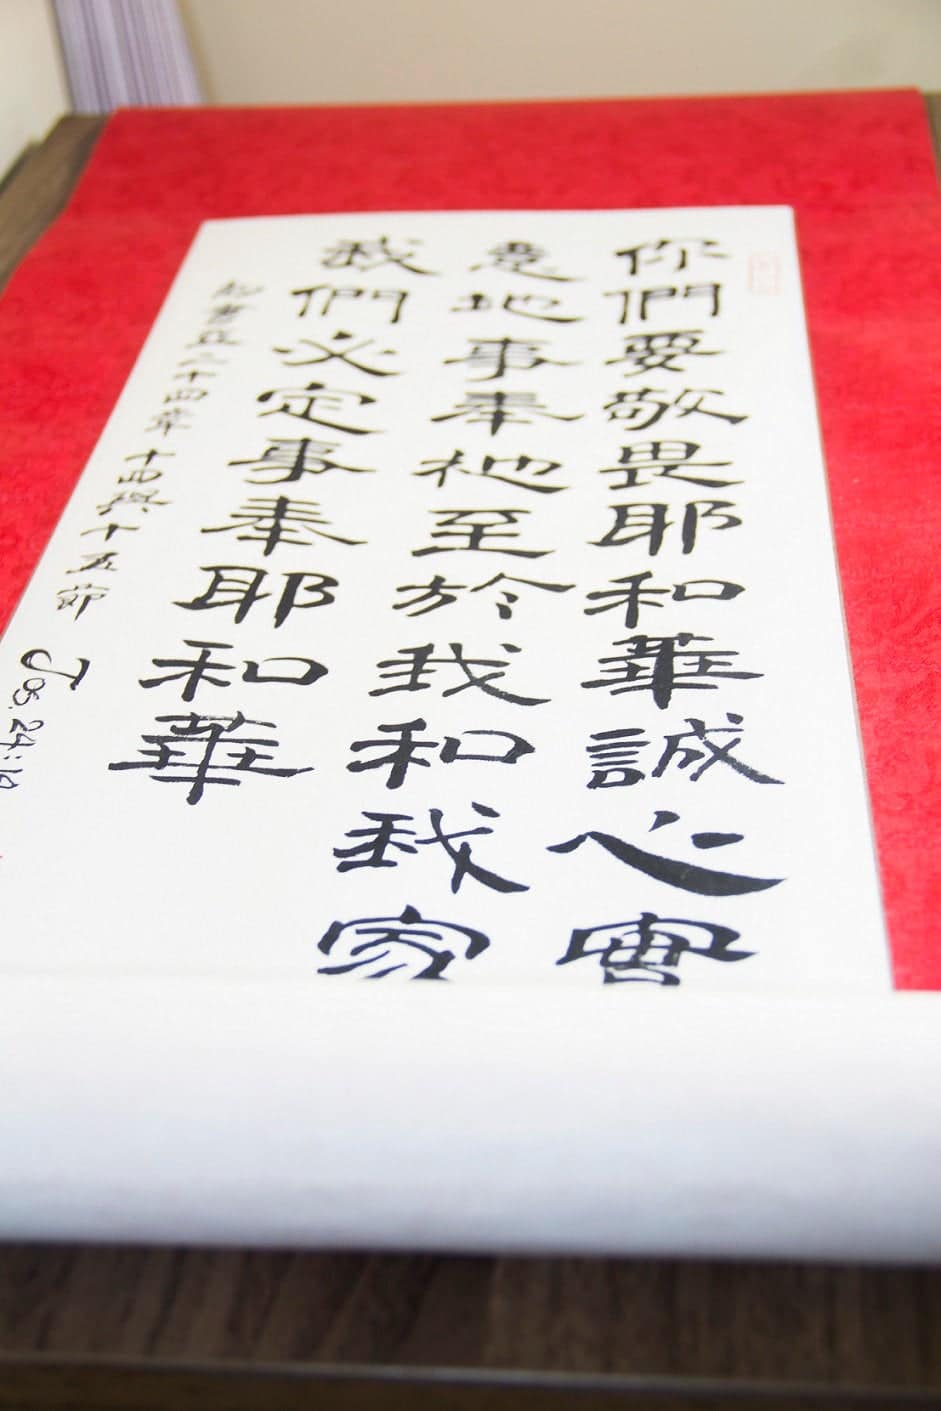 你們要敬畏耶和華誠心實
意地事奉祂至於我和我家
我們必定事奉耶和華
約書亞二十四章 十四與十五節 Jos. 24:14